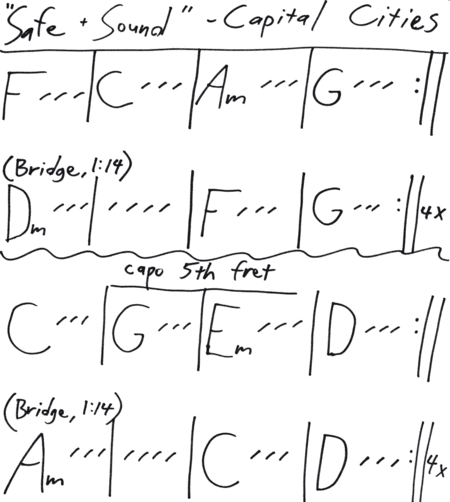 "Safe + Sound" - Capital Cities
F ′′′ | C ′′′ | Am ′′′ | G ′′′ :||
(Bridge, 1:14)
Dm ′′′ | ′′′′ | F ′′′ | G ′′′ :|| 4x
capo 5th fret
C ′′′ | G ′′′ | Em ′′′ | D ′′′ :||
(Bridge, 1:14)
Am ′′′ | ′′′′ | C ′′′ | D ′′′ :|| 4x